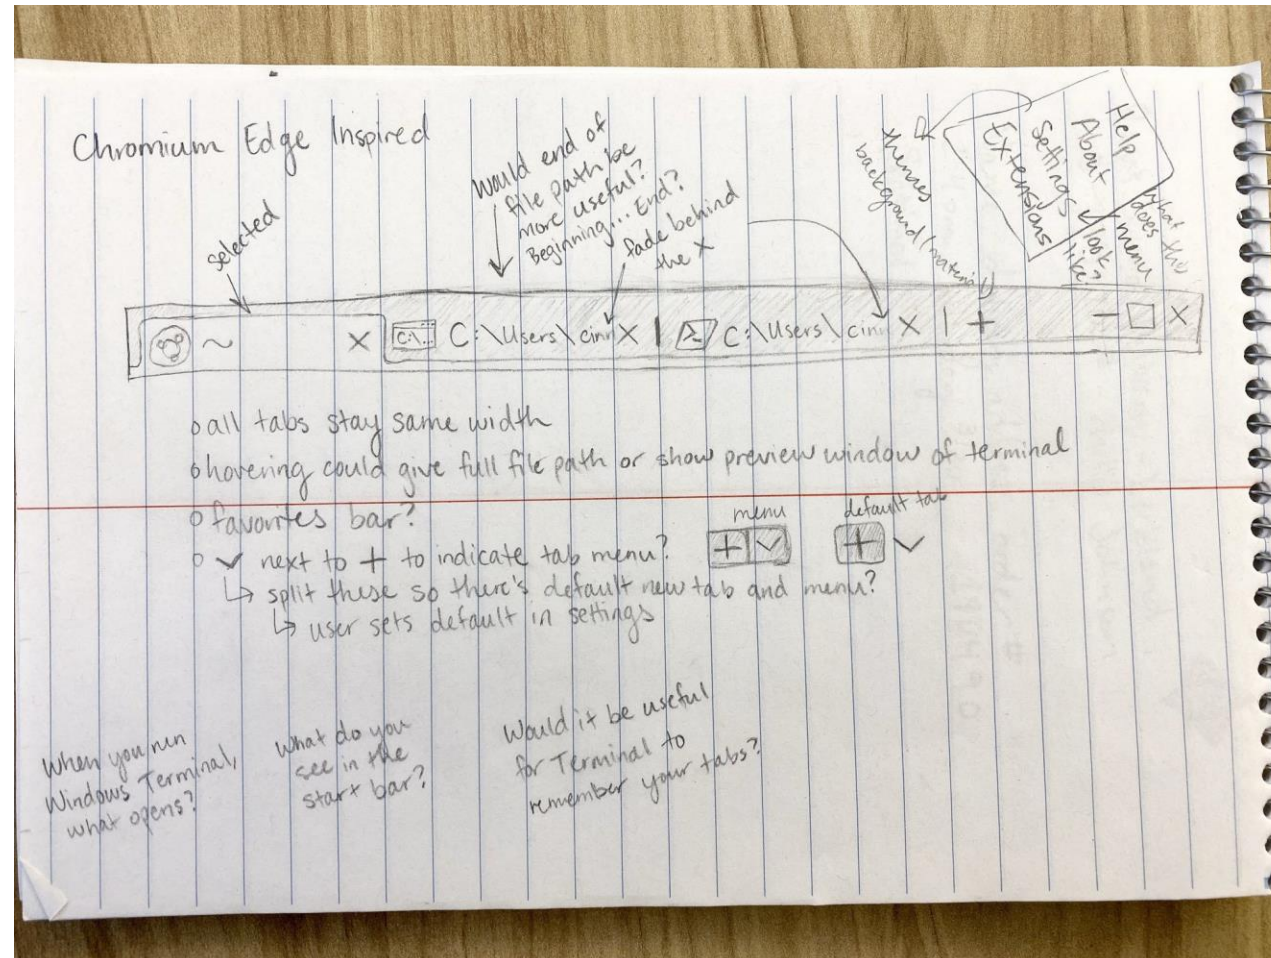 Chromium Edge Inspired
selected
Would end of
file path be
more useful?
Beginning... End?
fade behind
the X
themes
background (material)
Help
About
Settings
Extensions
what does this
menu
look
like?
~ X C:\. C:\Users\cinn X | >_ C:\Users\cinn X | + — □ X
o all tabs stay same width
o hovering could give full file path or show preview window of terminal
o favorites bar?
menu
default tab
o ✓ next to + to indicate tab menu?
↳ split these so there's default new tab and menu?
↳ user sets default in settings
When you run
Windows Terminal,
what opens?
What do you
see in the
start bar?
Would it be useful
for Terminal to
remember your tabs?